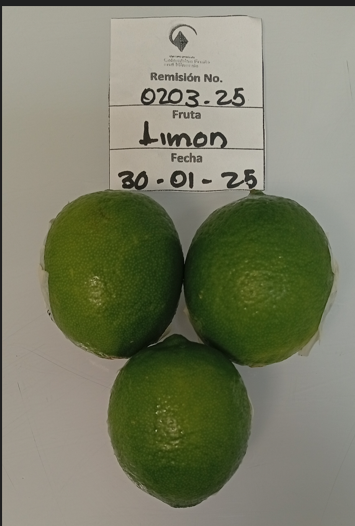 Remisión No.
0203-25
Fruta
Limon
Fecha
30-01-25